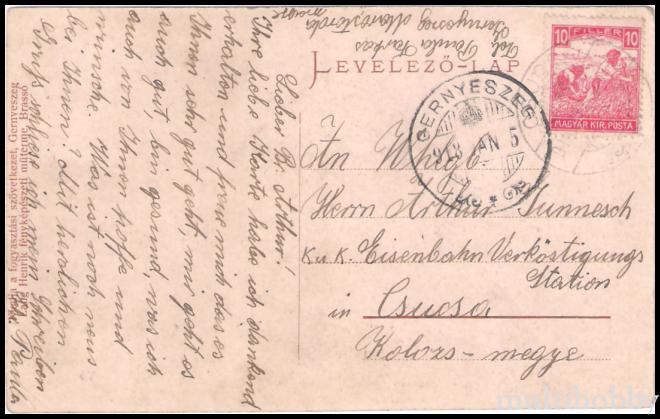 Fel. Paula Farkas
Gernyeszeg Marostorda
megye
LEVELEZŐ-LAP
10 FILLER 10
MAGYAR KIR. POSTA
GERNYESZEG
918 JAN 5
An Whgb.
Herrn Arthur Sunnesch
K. u. K. Eisenbahn Verköstigungs
Station
in Csucsa
Kolozs-megye
Lieber B. Arthur!
Ihre liebe Karte habe ich dankend
erhalten und freue mich das es
Ihnen sehr gut geht, mir geht es
auch gut, bin gesund, was ich
auch von Ihnen hoffe und
wünsche. Was ist noch neues
bei Ihnen? Mit herzlichen
Gruß schliesse ich
Paula
Hangya a fogyasztási szövetkezet, Gernyeszeg
Henrik fényképészeti műterme, Brassó
multhobby